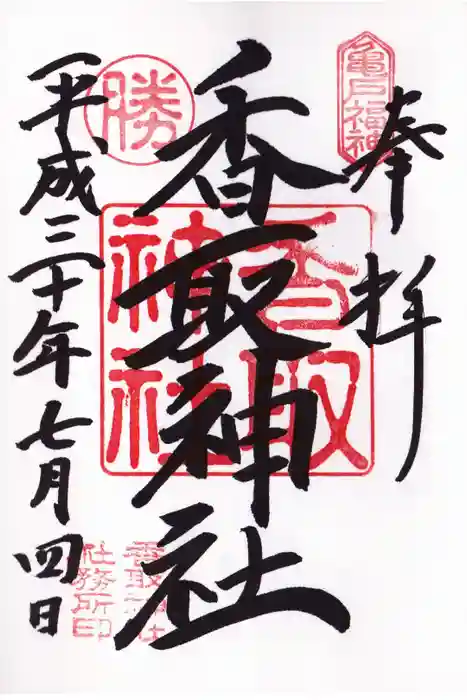 奉拝
亀戸福神
香取神社
香取神社
勝
平成三十年七月四日
香取神社
社務所印